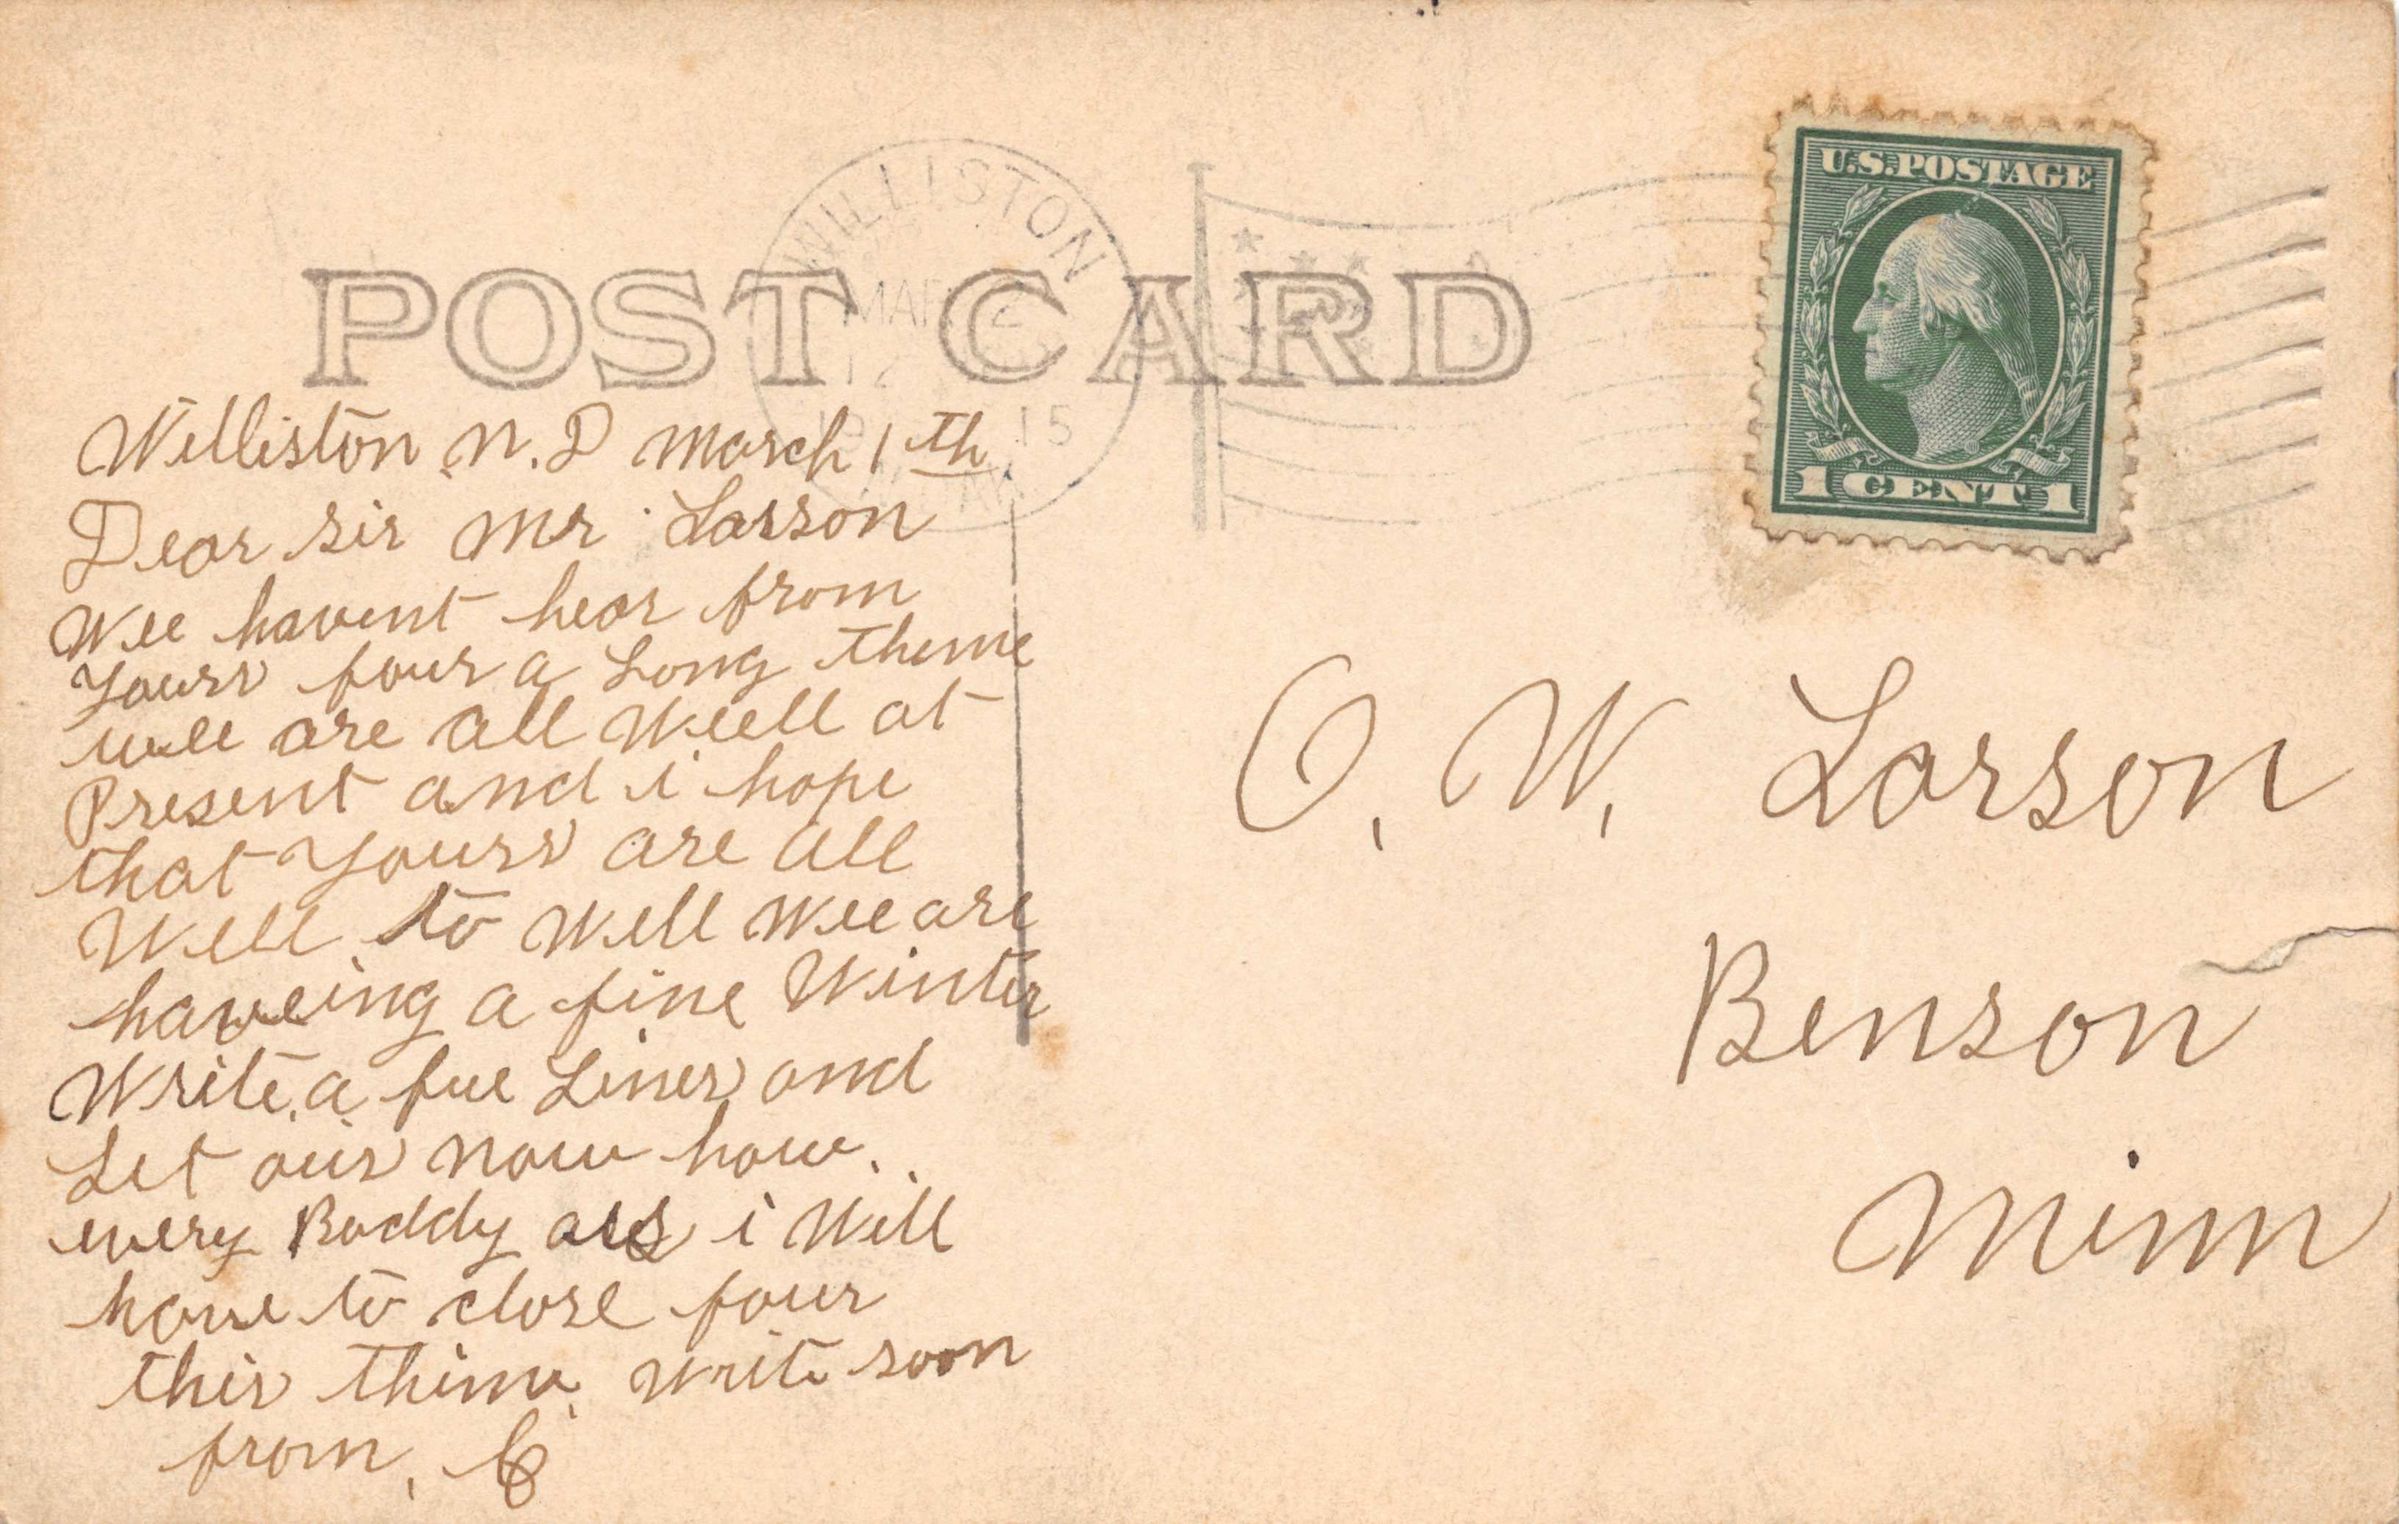 WILLISTON
MAR 2
12
19 15
POST CARD
U.S. POSTAGE
1 CENT 1
Williston N. D March 1th
Dear Sir Mr Larson
Wee havent hear from
Yours four a Long theme
wee are all Weell at
Present and i hope
that Yours are all
Well to Well Wee are
haveing a fine Winter
Write a fue Lines and
Let ous now how
every Boddy as i Will
have to close four
this thime Write soon
from C
O. W. Larson
Benson
Minn